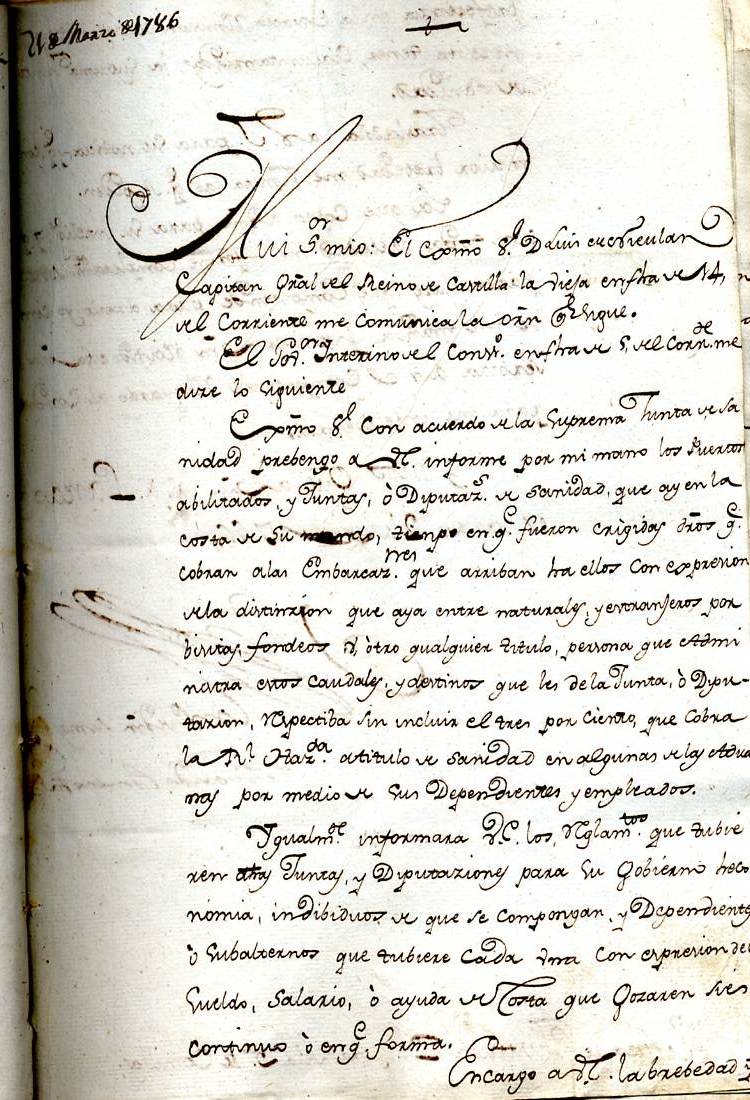 21 de Marzo de 1786
Mui Sor mio: El Exmo Sr Dn Luis de
Capitan Gral del Reino de Castilla la Vieja en fha de 14,
del Corriente me Comunica la orn qe sigue.
El Govor Interino del Consº. en fha de 5, del Corrte. me
dize lo siguiente
Exmo Sr. Con acuerdo de la Suprema Junta de Sa
nidad prebengo a VE. informe por mi mano los Puertos
abilitados, y Juntas, ò Diputazs. de Sanidad, que ay en la
costa de su mando, tienpo en qe fueron erigidas dros qe
cobran a las Embarcaznes que arriban ha ellos con expresion
de la distinzion que aya entre naturales, y estranjeros por
bisitas, fondeos ù, òtro qualquier titulo, persona que Admi
nistra estos caudales, y destinos que les de la Junta, ò Dipu-
tazion, respectiba sin incluir el tres por Ciento, que Cobra
la Rl Hazda. a titulo de Sanidad en algunas de las Adua
nas por medio de sus Dependientes y empleados.
Ygualmte informara V.E. los, Reglamtos que tubie
ren dhas Juntas, y Diputaziones para su Gobierno heco
nomia, indibiduos de que se Compongan, y Dependientes
ò Subalternos que tubiere cada una con espresion del
Sueldo, Salario, ò ayuda de Costa que Gozaren sies
continuo ò en qe forma.
Encargo a VE. la brebedad